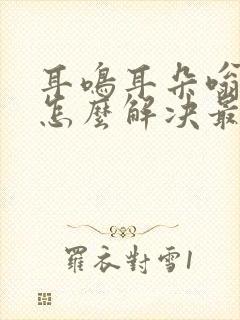 耳鳴耳朵嗡
怎麼解决最
羅衣對雪1